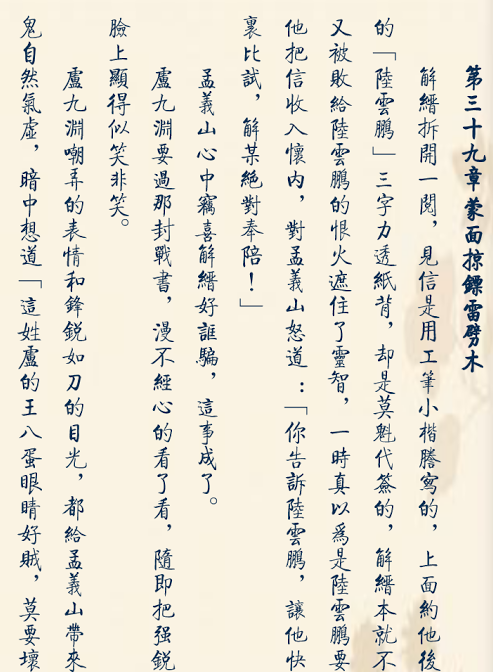 第三十九章蒙面掠鏢雷劈木
解縉拆開一閱，見信是用工筆小楷謄寫的，上面約他後
的「陸雲鵬」三字力透紙背，却是莫魁代簽的，解縉本就不
又被敗給陸雲鵬的恨火遮住了靈智，一時真以爲是陸雲鵬要
他把信收入懷內，對孟義山怒道：「你告訴陸雲鵬，讓他快
裏比試，解某絕對奉陪！」
孟義山心中竊喜解縉好誆騙，這事成了。
盧九淵要過那封戰書，漫不經心的看了看，隨即把强銳
臉上顯得似笑非笑。
盧九淵嘲弄的表情和鋒銳如刀的目光，都給孟義山帶來
鬼自然氣虛，暗中想道「這姓盧的王八蛋眼睛好賊，莫要壞